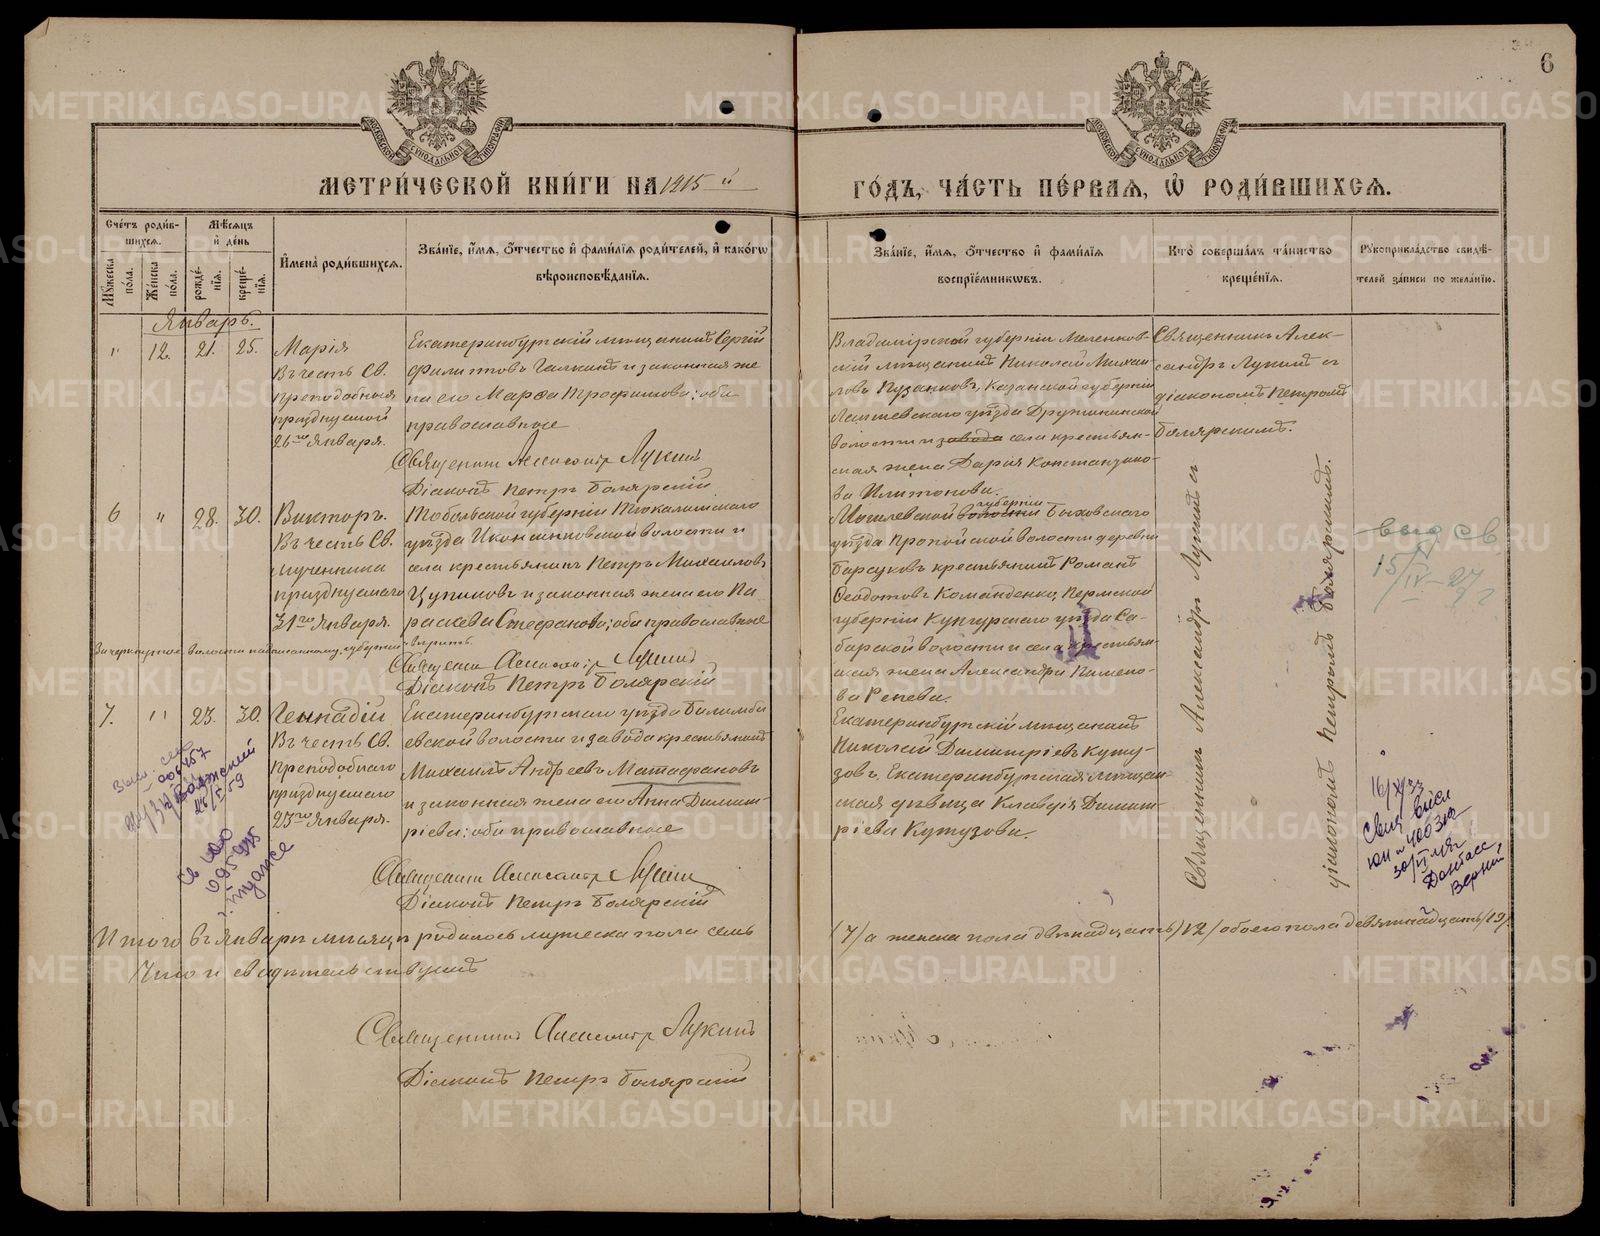 6
МЕТРИ́ЧЕСКОЙ КНИ́ГИ НА 1915 й
ГО́ДЪ, ЧА́СТЬ ПЕ́РВАѦ, Ѡ҆ РОДИ́ВШИХСѦ.
Сче́тъ роди́вшихсѧ.
Мꙋ́жеска по́ла.
Же́нска по́ла.
Мѣ́сѧцъ и҆ де́нь
рожде́нїѧ.
креще́нїѧ.
И҆мена̀ роди́вшихсѧ.
Зва́нїе, и҆́мѧ, ѻ҆́тчество и҆ фами́лїѧ роди́телей, и҆ како́гѡ
вѣроисповѣ́данїѧ.
Зва́нїе, и҆́мѧ, ѻ҆́тчество и҆ фами́лїѧ
воспрїе́мникѡвъ.
Кто̀ соверша́лъ та́инство
креще́нїѧ.
Рꙋкоприкла́дство свидѣ́-
телей за́писи по жела́нїю.
Январь.
" 12. 21. 25.
Марія
Въ честь Св.
преподобныя
празднуемой
26го Января.
Екатеринбургскій мѣщанинъ Сергій
Филиповъ Галкинъ и законная же
на его Марѳа Трофимова; оба
православные
Священникъ Александръ Лукинъ
Діаконъ Петръ Болярскій
Владимірской губерніи Меленков-
скій мѣщанинъ Николай Михаи-
ловъ Пузанковъ, Казанской губерніи
Лаишевскаго уѣзда
волости и завода села крестьян-
ская жена Дарія Константино-
ва
Священникъ Алек-
сандръ Лукинъ съ
діакономъ Петромъ
Болярскимъ.
6 " 28. 30.
Викторъ.
Въ честь Св.
мученика
празднуемаго
31го Января.
Тобольской губерніи Тюкалинскаго
уѣзда Иконниковской волости и
села крестьянинъ Петръ Михаиловъ
Цупиковъ и законная жена его Па
раскева Стефанова; оба православные
Зачеркнутое: волости надписанному: губерніи вѣрить.
Священникъ Александръ Лукинъ
Діаконъ Петръ Болярскій
губерніи
Могилевской волости Быховскаго
уѣзда Пропойской волости деревни
Барсуковъ крестьянинъ Романъ
Ѳеодотовъ Команденко, Пермской
губерніи Кунгурскаго уѣзда Са-
барской волости и села крестьян-
ская жена Александра
ва Репева.
Священникъ Александръ Лукинъ съ
діакономъ Петромъ Болярскимъ.
15/IV-27 г
7. " 23. 30.
Геннадій
Въ честь Св.
Преподобнаго
празднуемаго
23го Января.
Екатеринбургскаго уѣзда Билимба
евской волости и завода крестьянинъ
Михаилъ Андреевъ Матафановъ
и законная жена его Анна Димит-
ріева; оба православные
Священникъ Александръ Лукинъ
Діаконъ Петръ Болярскій
Екатеринбургскій мѣщанинъ
Николай Димитріевъ Куту-
зовъ, Екатеринбургская мѣщан-
ская дѣвица Клавдія Димит-
ріева Кутузова.
Донбасс
Итого въ Январѣ мѣсяцѣ родилось мужеска пола семь
/7/ а женска пола двѣнадцать /12/ обоего пола девятнадцать /19/.
Что и свидѣтельствуемъ
Священникъ Александръ Лукинъ
Діаконъ Петръ Болярскій
METRIKI.GASO-URAL.RU